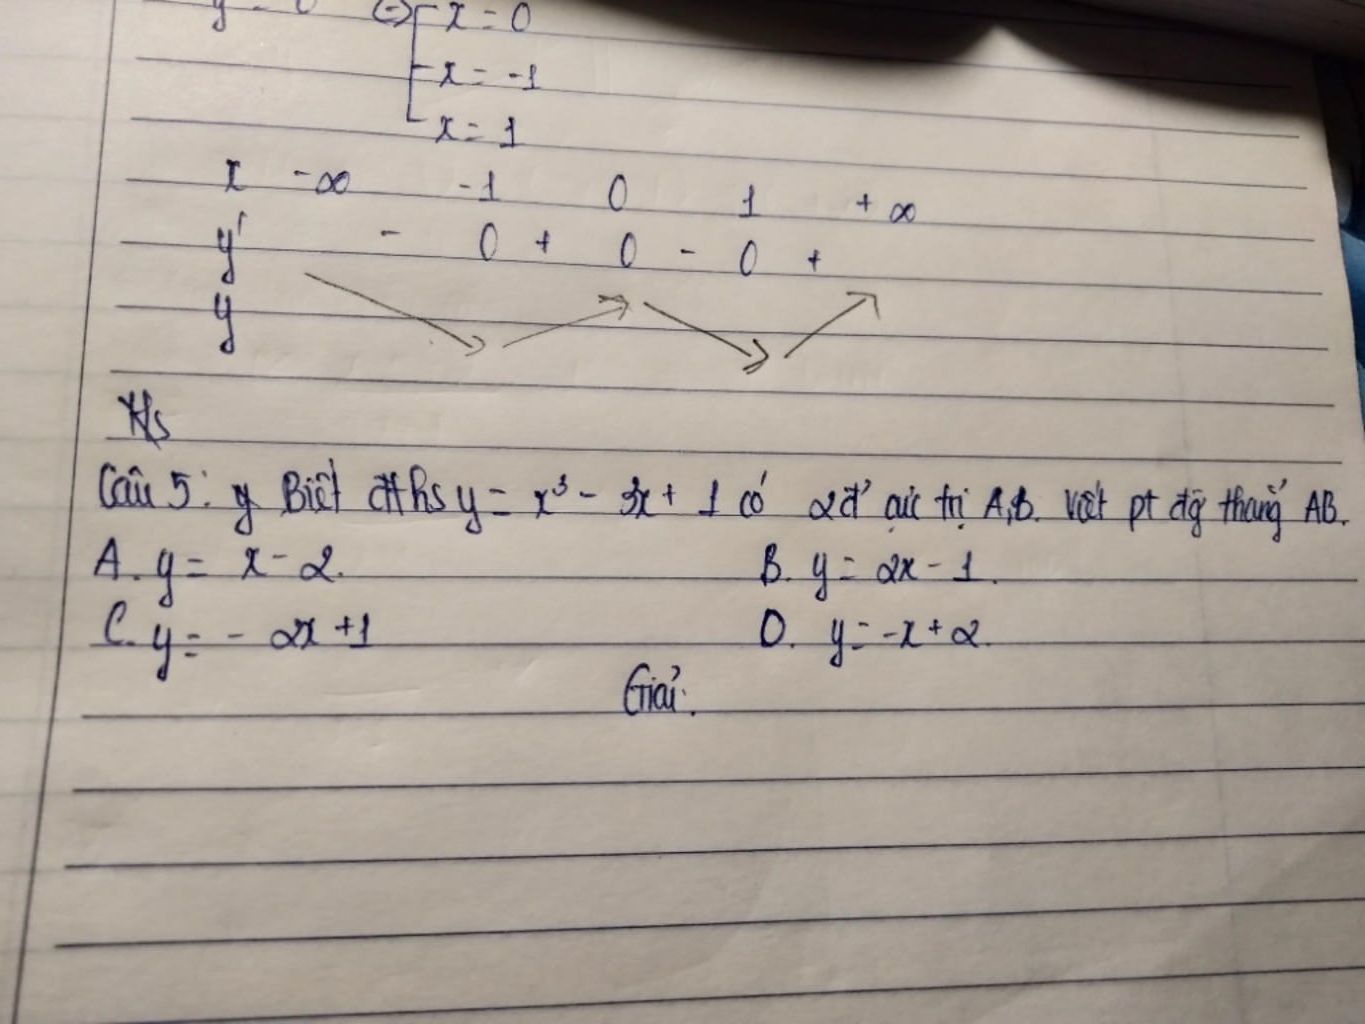 y = 0 (=) [ x = 0
x = -1
x = 1
x -∞ -1 0 1 +∞
y' - 0 + 0 - 0 +
y
Hs
Câu 5: y Biết đths y = x³ - 3x + 1 có 2đ' cực trị A,B. Viết pt đg thẳng AB.
A. y = x - 2. B. y = 2x - 1.
C. y = - 2x + 1 D. y = -x + 2.
Giải: